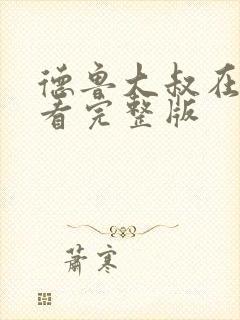 德鲁大叔在
看完整版
萧寒